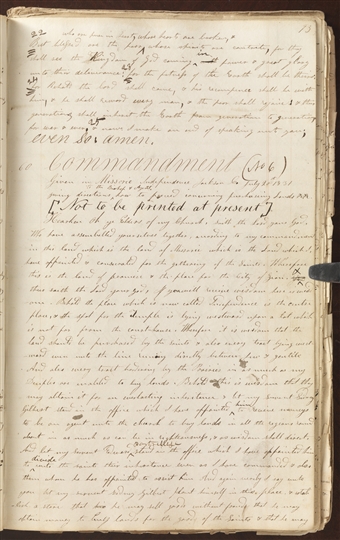 13
who are pure in heart, whose hearts are broken, &
whose spirits are contrite, for they
shall see the Kingdom of God coming in power & great glory
to their deliverance: for the fatness of the Earth shall be theirs
for Behold the Lord shall come, & his recompense shall be with
him, & he shall reward every man, & the poor shall rejoice & their
generations shall inherit the Earth from generation to generation,
for ever & ever. & now I make an end of speaking unto you,
even so: amen.
60 Commandment (No 6)
Given in Missouri Independence Jackson Co July 20 1831
to the Bishop & others
directions how to proceed purchasing lands &c
[Not to be printed at present]
Hearken Oh ye Elders of my Church, saith the Lord your God,
who have assembled yourselves together, according to my commandment
in this land which is the land of Missorie which is the Land which I
have appointed & consecrated for the gathering of the Saints. Wherefore
this is the land of promise & the place for the City of Zion &
thus saith the Lord your God, if you will receive wisdom here is wisdom
Behold the place which is now called Independence is the center
place, & the spot for the Temple is lying westward upon a lot which
is not far from the court-house. Wherefore it is wisdom that the
land should be purchased by the Saints & also every tract lying west
ward even unto the line running directly between Jew & gentile
And also every tract bordering by the Praries in as much as my
Disciples are enabled to buy lands. Behold this is wisdom that they
may obtain it for an everlasting inheritance & let my servant Sidney
Gilbert stand in the office which I have appointed him to receive moneys
to be an agent unto the church to buy lands in all the regions round
about in as much as can be in righteousness, & as wisdom shall direct.
And let my servant Edward Partridge stand in the office which I have appointed him to
divide unto the saints their inheritance even as I have commanded & also
those whom he has appointed to assist him. And again verily I say unto
you let my servant Sidney Gilbert plant himself in this place, & establish
a store that he may sell goods without fraud that he may
obtain money to buy lands for the good of the Saints & that he may